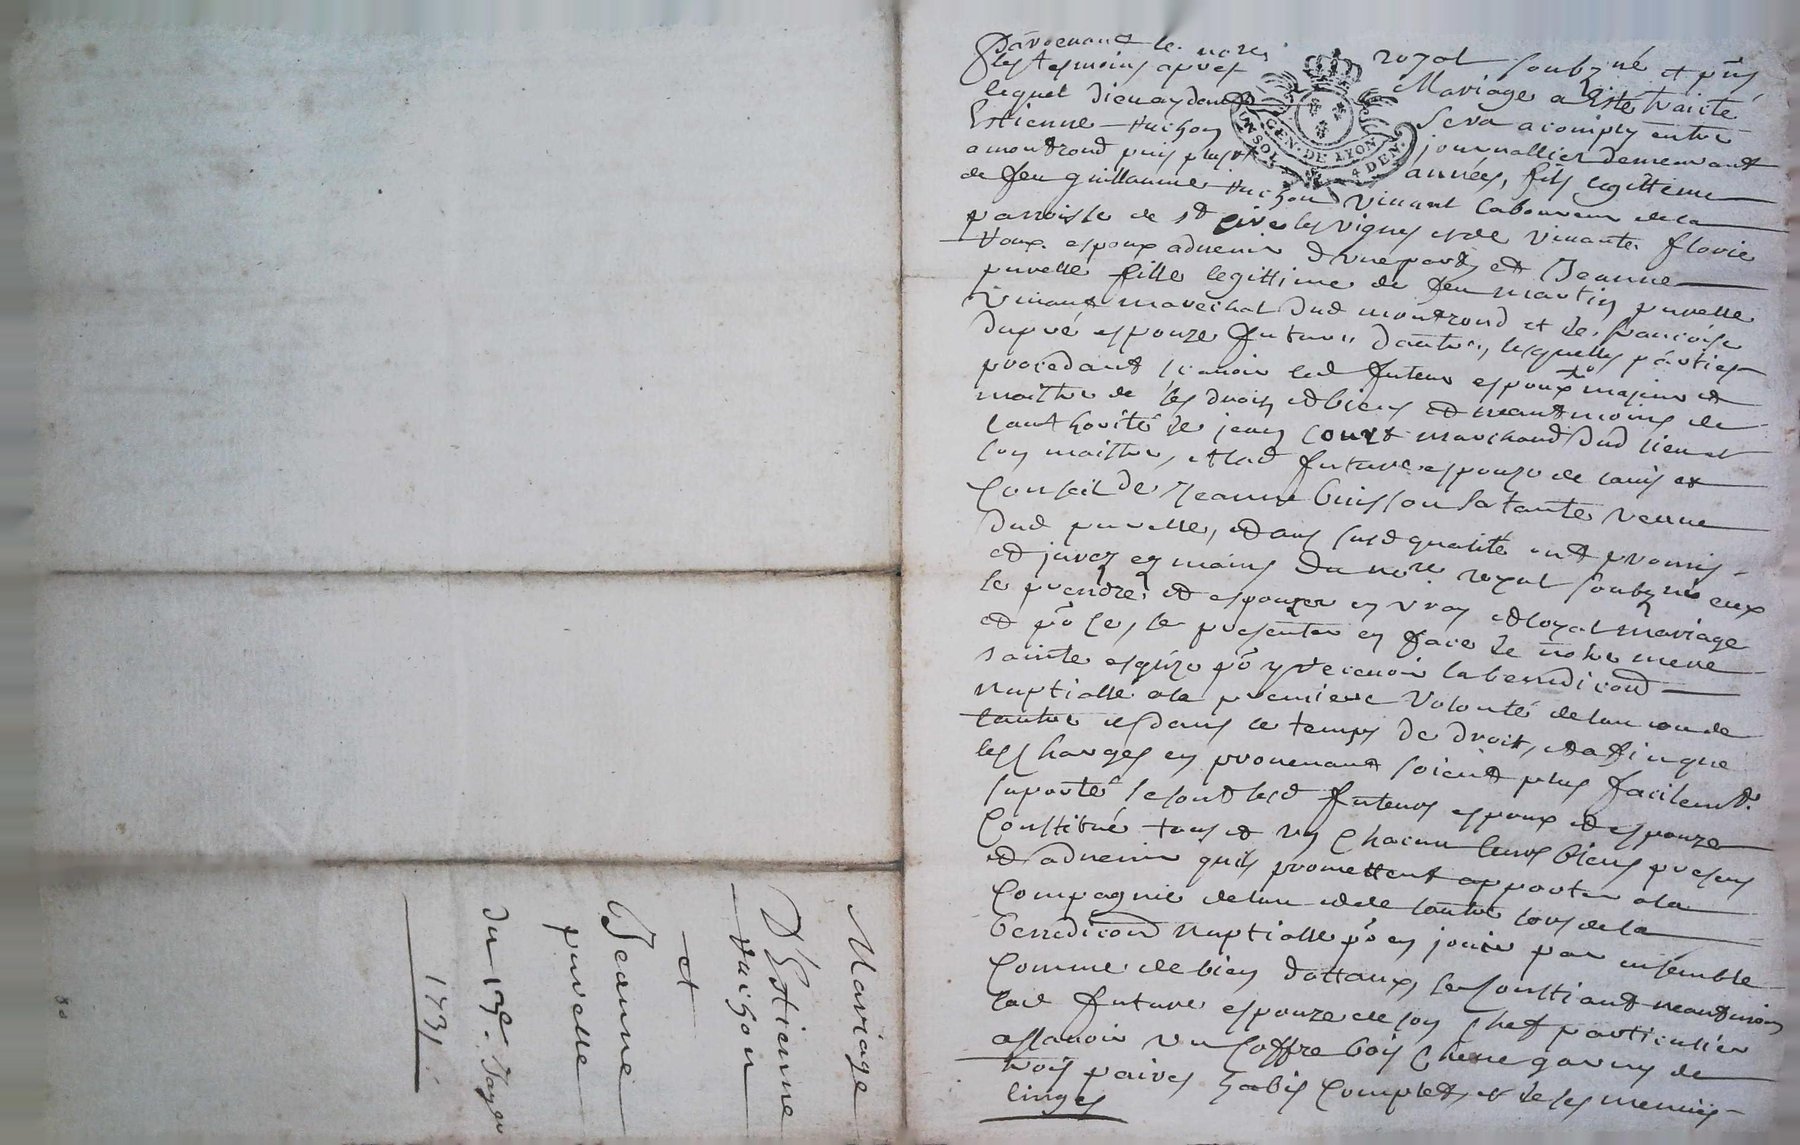 Mariage
D'Estienne
huchon
et
Jeanne
puvelle
du 13e. Jayer
1731.
Pardevant le notre. royal soubzné et pnts
les tesmoins apres Mariage a esté traité
lequel dieu aydant sera acomply entre
Estienne huchon journallier demeurant
a montrond puis plusrs années, fils legitime
de feu guillaume huchon vivant laboureur de la
parroisse de st cire les vignes et de vivante florie
espoux advenir d'une part, et Jeanne
puvelle fille legittime de feu martin puvelle
vivant marechal dud montrond et de francoise
dupré espouze future d'autre, lesquelles parties
procedant scavoir led futeur espoux majeur et
maitre de ses droits et biens et neantmoins de
l'authorité de jean court marchand dud lieu et
son maitre, et lad future espouze de l'avis et
Conseil de Jeanne buisson sa tante veuve
dud puvelle, et aus susd qualité ont promis
et jurez es mains du nore. royal soubzné eux
le prendre et espouzer en vray et loyal mariage
et po ce, se presenter en face de notre mere
sainte esglize po y recevoir la benediction
nuptialle a la premiere volonté de l'un ou de
l'autre et dans le temps de droit, et affin que
les charges en provenant soient plus facilemt.
suporté se sont lesd futeurs espoux et espouze
Constitué tous et un chacun leurs biens presens
et advenir quils promettent apporter a la
Compagnie de l'un et de l'autre lors de la
benediction nuptialle po en jouir par ensemble
Comme de bien dottaux, se constituant neantmoins
lad future espouze de son chef particulier
assavoir un coffre bois chene garny de
trois paires habis complets, et de ses menus
linges
GEN. DE LYON
UN SOL 4 DEN.